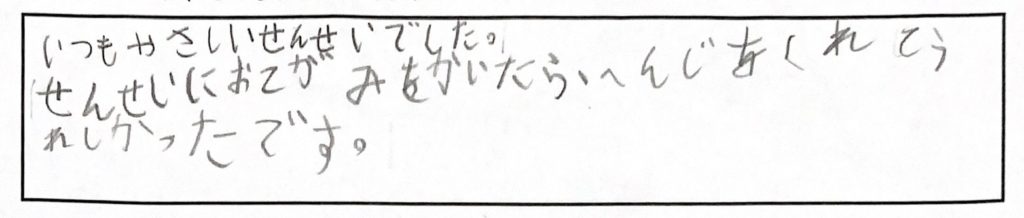 いつもやさしいせんせいでした。
せんせいにおてがみをがいたら、へんじをくれてう
れしかったです。